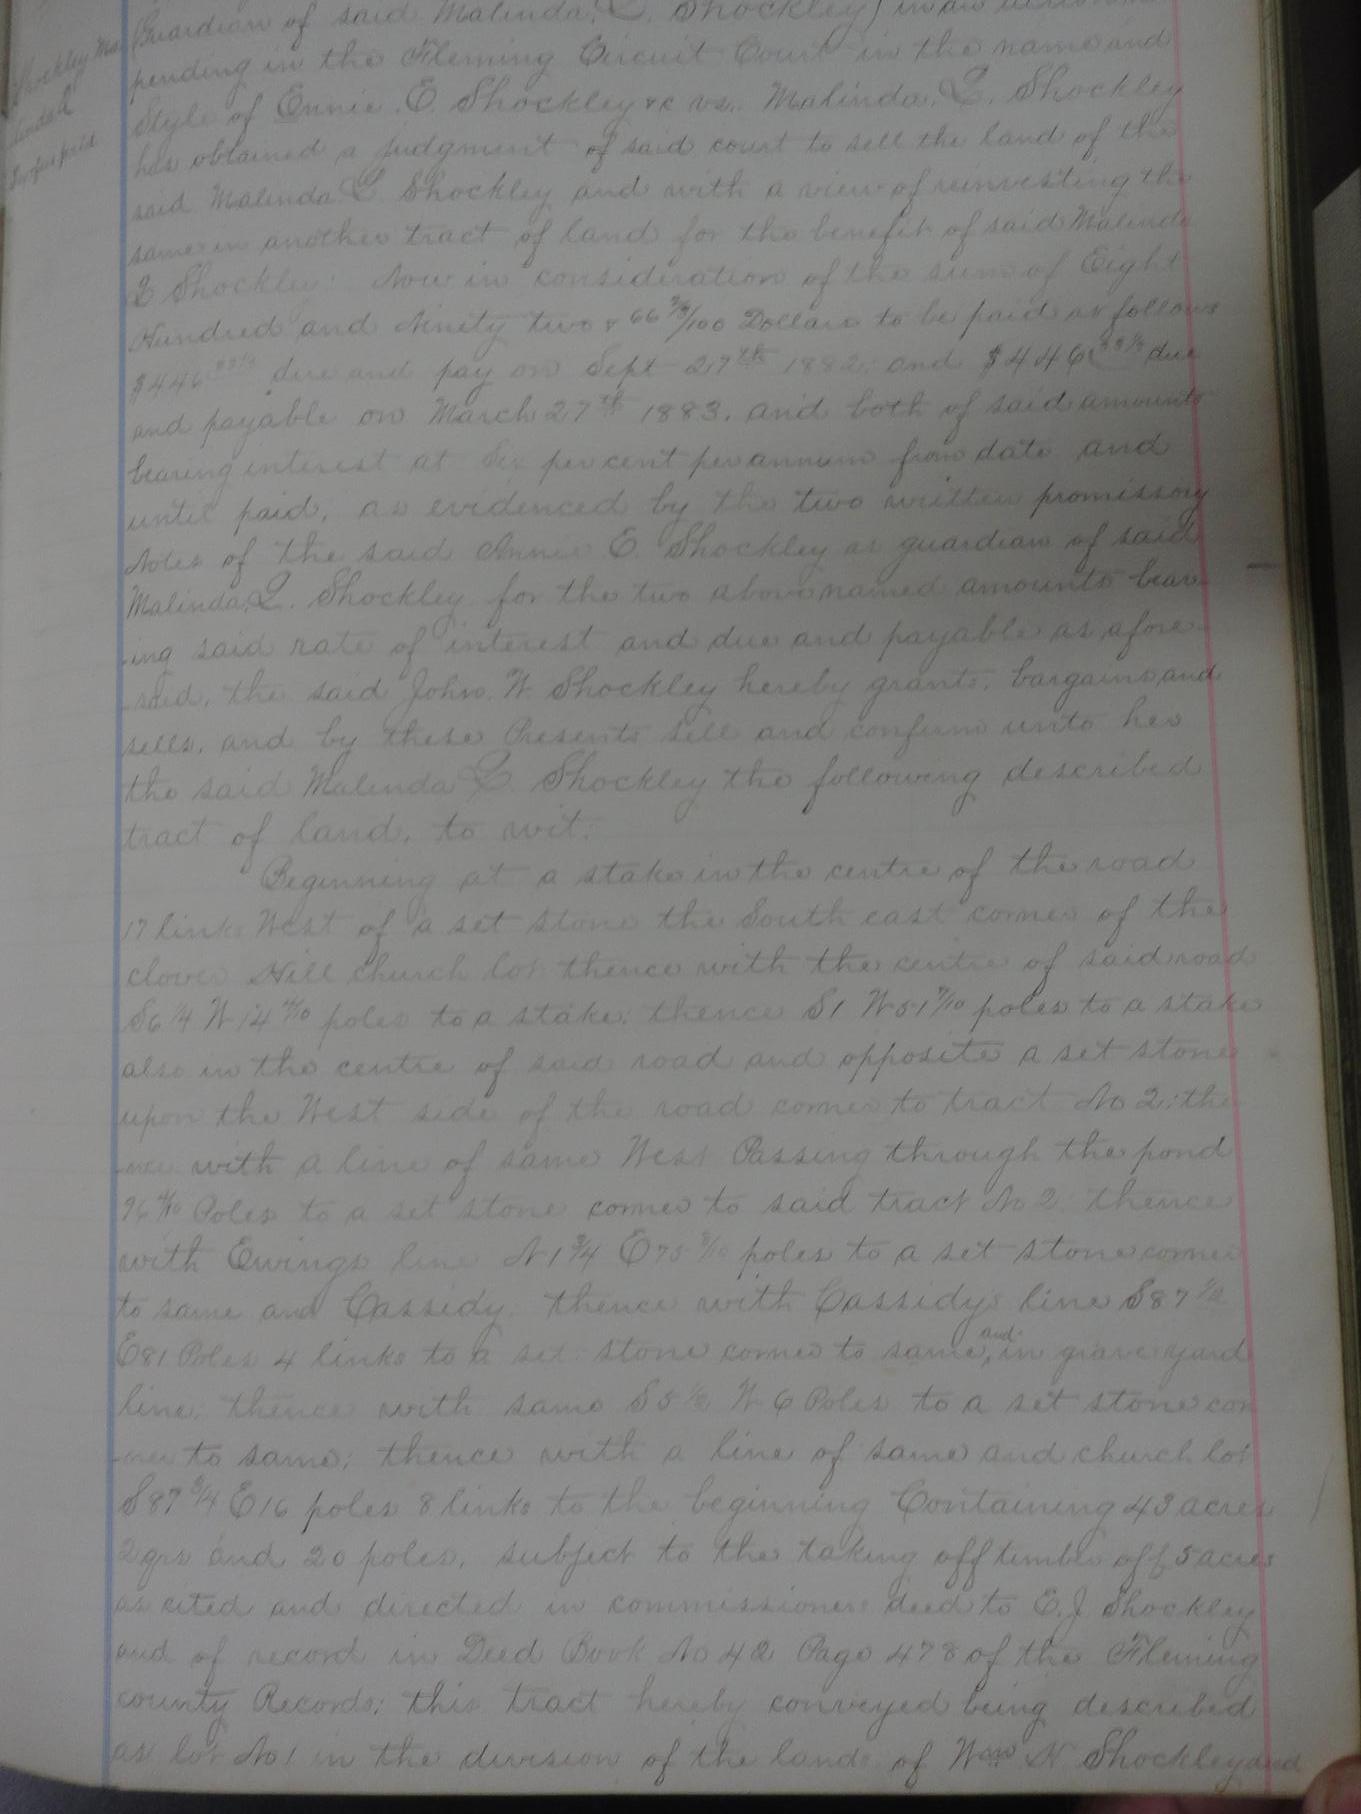 Guardian of said Malinda L. Shockley) in an
Shockley Ma
linda L
Tax fee paid
pending in the Fleming Circuit Court in the name and
Style of Ennie. E. Shockley &c vs. Malinda. L. Shockley
has obtained a judgment of said court to sell the land of the
said Malinda L. Shockley and with a view of reinvesting the
same in another tract of land for the benefit of said Malinda
L Shockley: Now in consideration of the sum of Eight
Hundred and Ninety two & 66 2/3/100 Dollars to be paid as follows
$446 33 1/3 due and pay on Sept 27th 1882, and $446 33 1/3 due
and payable on March 27th 1883. and both of said amounts
bearing interest at Six per cent per annum from date and
until paid, as evidenced by the two written promissory
Notes of the said Annie E. Shockley as guardian of said
Malinda, L. Shockley for the two above named amounts bear-
-ing said rate of interest and due and payable as afore-
-said, the said John. W. Shockley hereby grants, bargains and
sells, and by these Presents sell and confirm unto her
the said Malinda L. Shockley the following described
tract of land, to wit:
Beginning at a stake in the centre of the road
17 links West of a set stone the South east corner of the
clover Hill church lot thence with the centre of said road
S6 1/4 W 14 4/10 poles to a stake; thence S1 W 51 7/10 poles to a stake
also in the centre of said road and opposite a set stone
upon the West side of the road corner to tract No 2; the
-nce with a line of same West Passing through the pond
96 4/10 Poles to a set stone corner to said tract No 2 thence
with Ewings line N 1 3/4 E 75 8/10 poles to a set stone corner
to same and Cassidy. thence with Cassidys line S87 1/2
E81 Poles 4 links to a set stone corner to same, and in grave yard
line; thence with same S5 1/2 W 6 Poles to a set stone cor
-ner to same; thence with a line of same and church lot
S87 3/4 E16 poles 8 links to the beginning Containing 43 acres
2 qrs and 20 poles, subject to the taking off timber off 5 acres
as cited and directed in commissioners deed to E. J. Shockley
and of record in Deed Book No 42 Page 478 of the Fleming
county Records; this tract hereby conveyed being described
as lot No 1 in the division of the lands of Wm H Shockley decd